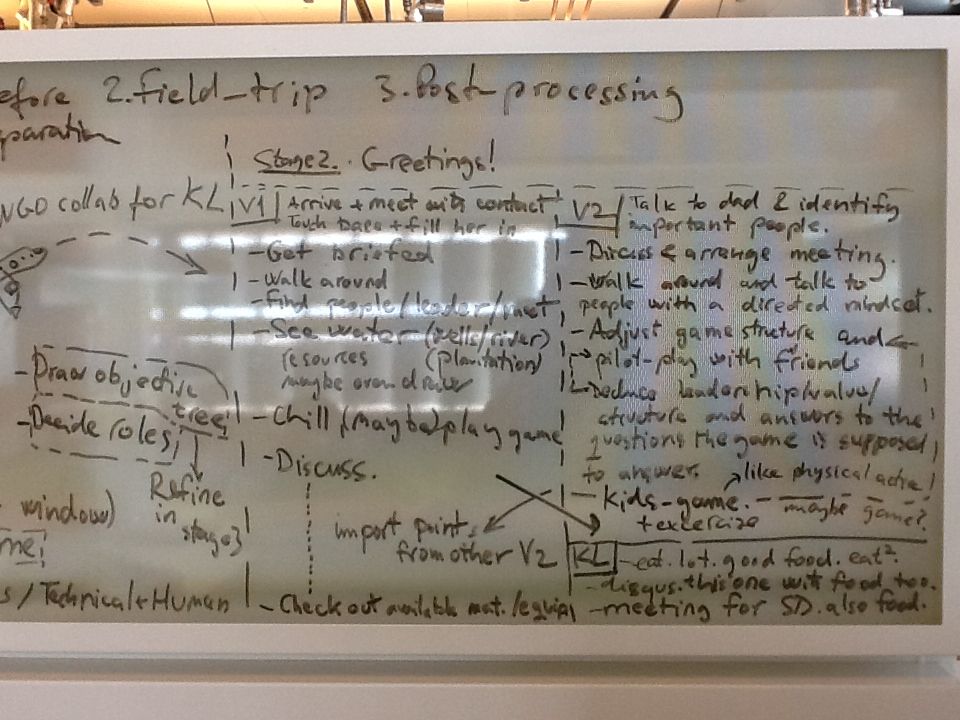 efore 2.Field_trip 3.Post-processing
paration
Stage2. Greetings!
NGO collab for KL
V1 Arrive + meet with contact
Touch base + fill her in
- Get briefed
- Walk around
- Find people/leader/meet
- See water (wells/river)
resources (Plantation)
maybe even draw
- Chill (maybe) play game
- Discuss.
import points
from other V2
- Check out available mat./equip
V2 Talk to dad & identify
important people.
- Discuss & arrange meeting.
- Walk around and talk to
people with a directed mindset.
- Adjust game structure and
pilot-play with friends
- Deduce leadership/value/
structure and answers to the
questions the game is supposed
to answer.
- Kids-game. - maybe game?
like physical active
+ excercize
KL - eat. lot. good food. eat²
- disqus. this one with food too.
- meeting for SD. also food.
- Draw objective
tree
- Decide roles
Refine
in
stage3
window)
me
s/Technical+Human